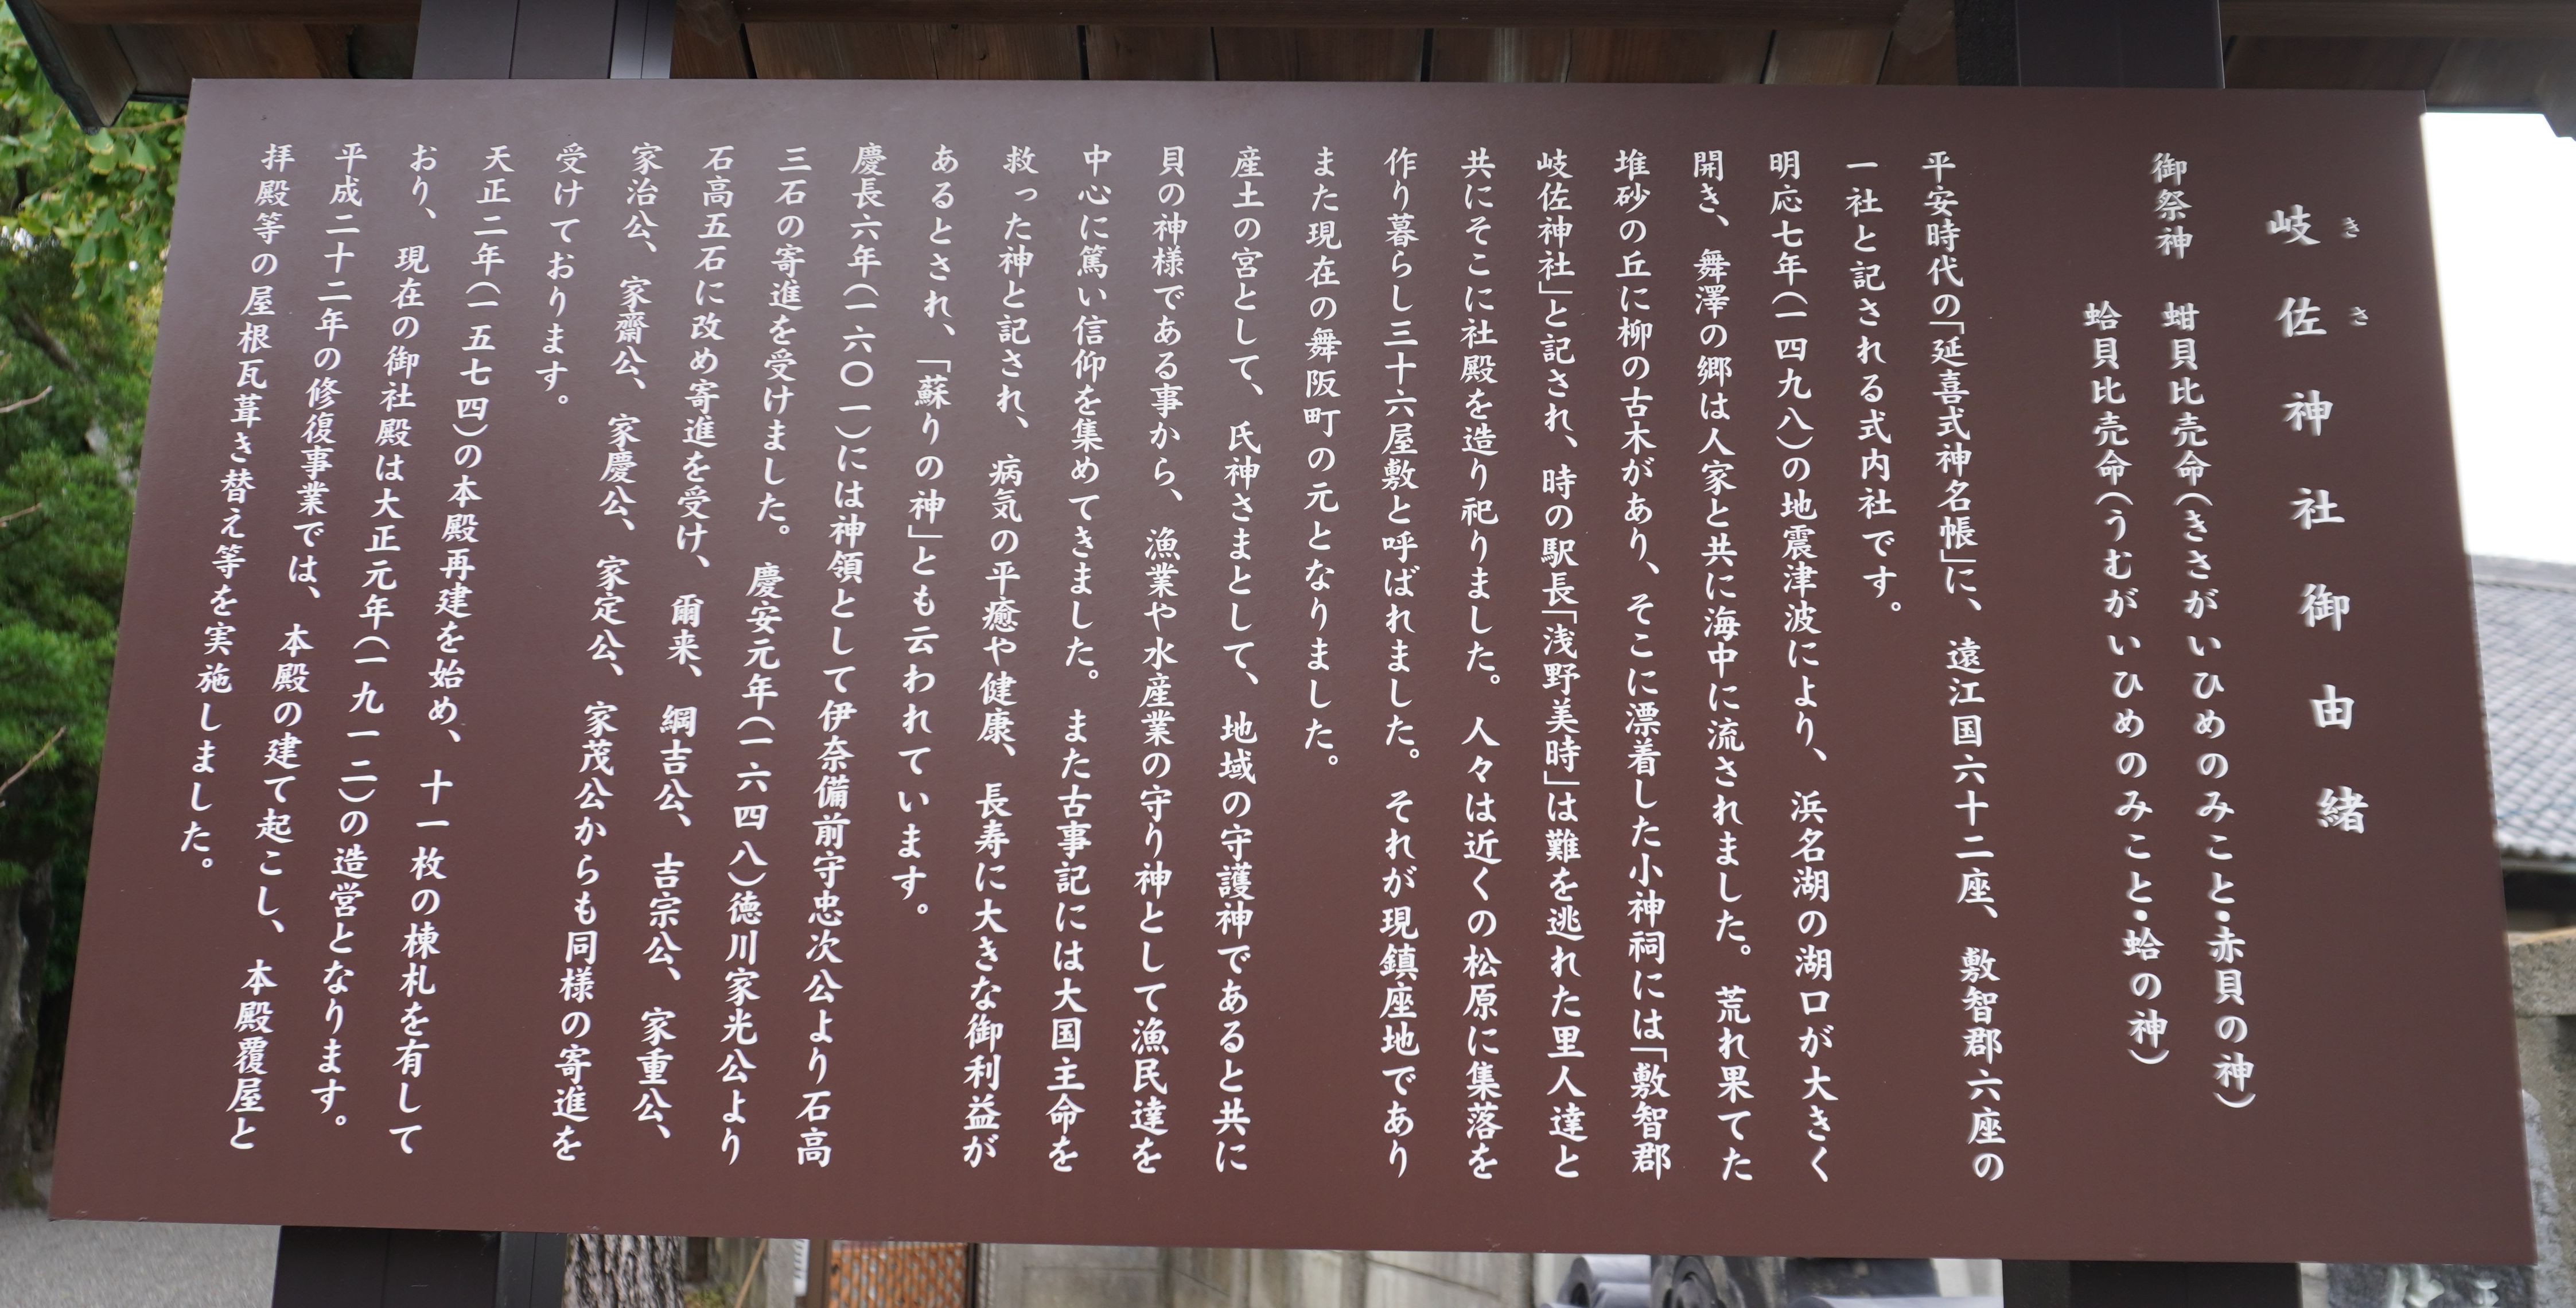 岐佐神社御由緒
きさ
御祭神　蚶貝比売命（きさがいひめのみこと・赤貝の神）
蛤貝比売命（うむがいひめのみこと・蛤の神）
平安時代の「延喜式神名帳」に、遠江国六十二座、敷智郡六座の
一社と記される式内社です。
明応七年（一四九八）の地震津波により、浜名湖の湖口が大きく
開き、舞澤の郷は人家と共に海中に流されました。荒れ果てた
堆砂の丘に柳の古木があり、そこに漂着した小神祠には「敷智郡
岐佐神社」と記され、時の駅長「浅野美時」は難を逃れた里人達と
共にそこに社殿を造り祀りました。人々は近くの松原に集落を
作り暮らし三十六屋敷と呼ばれました。それが現鎮座地であり
また現在の舞阪町の元となりました。
産土の宮として、氏神さまとして、地域の守護神であると共に
貝の神様である事から、漁業や水産業の守り神として漁民達を
中心に篤い信仰を集めてきました。また古事記には大国主命を
救った神と記され、病気の平癒や健康、長寿に大きな御利益が
あるとされ、「蘇りの神」とも云われています。
慶長六年（一六〇一）には神領として伊奈備前守忠次公より石高
三石の寄進を受けました。慶安元年（一六四八）徳川家光公より
石高五石に改め寄進を受け、爾来、綱吉公、吉宗公、家重公、
家治公、家齋公、家慶公、家定公、家茂公からも同様の寄進を
受けております。
天正二年（一五七四）の本殿再建を始め、十一枚の棟札を有して
おり、現在の御社殿は大正元年（一九一二）の造営となります。
平成二十二年の修復事業では、本殿の建て起こし、本殿覆屋と
拝殿等の屋根瓦葺き替え等を実施しました。